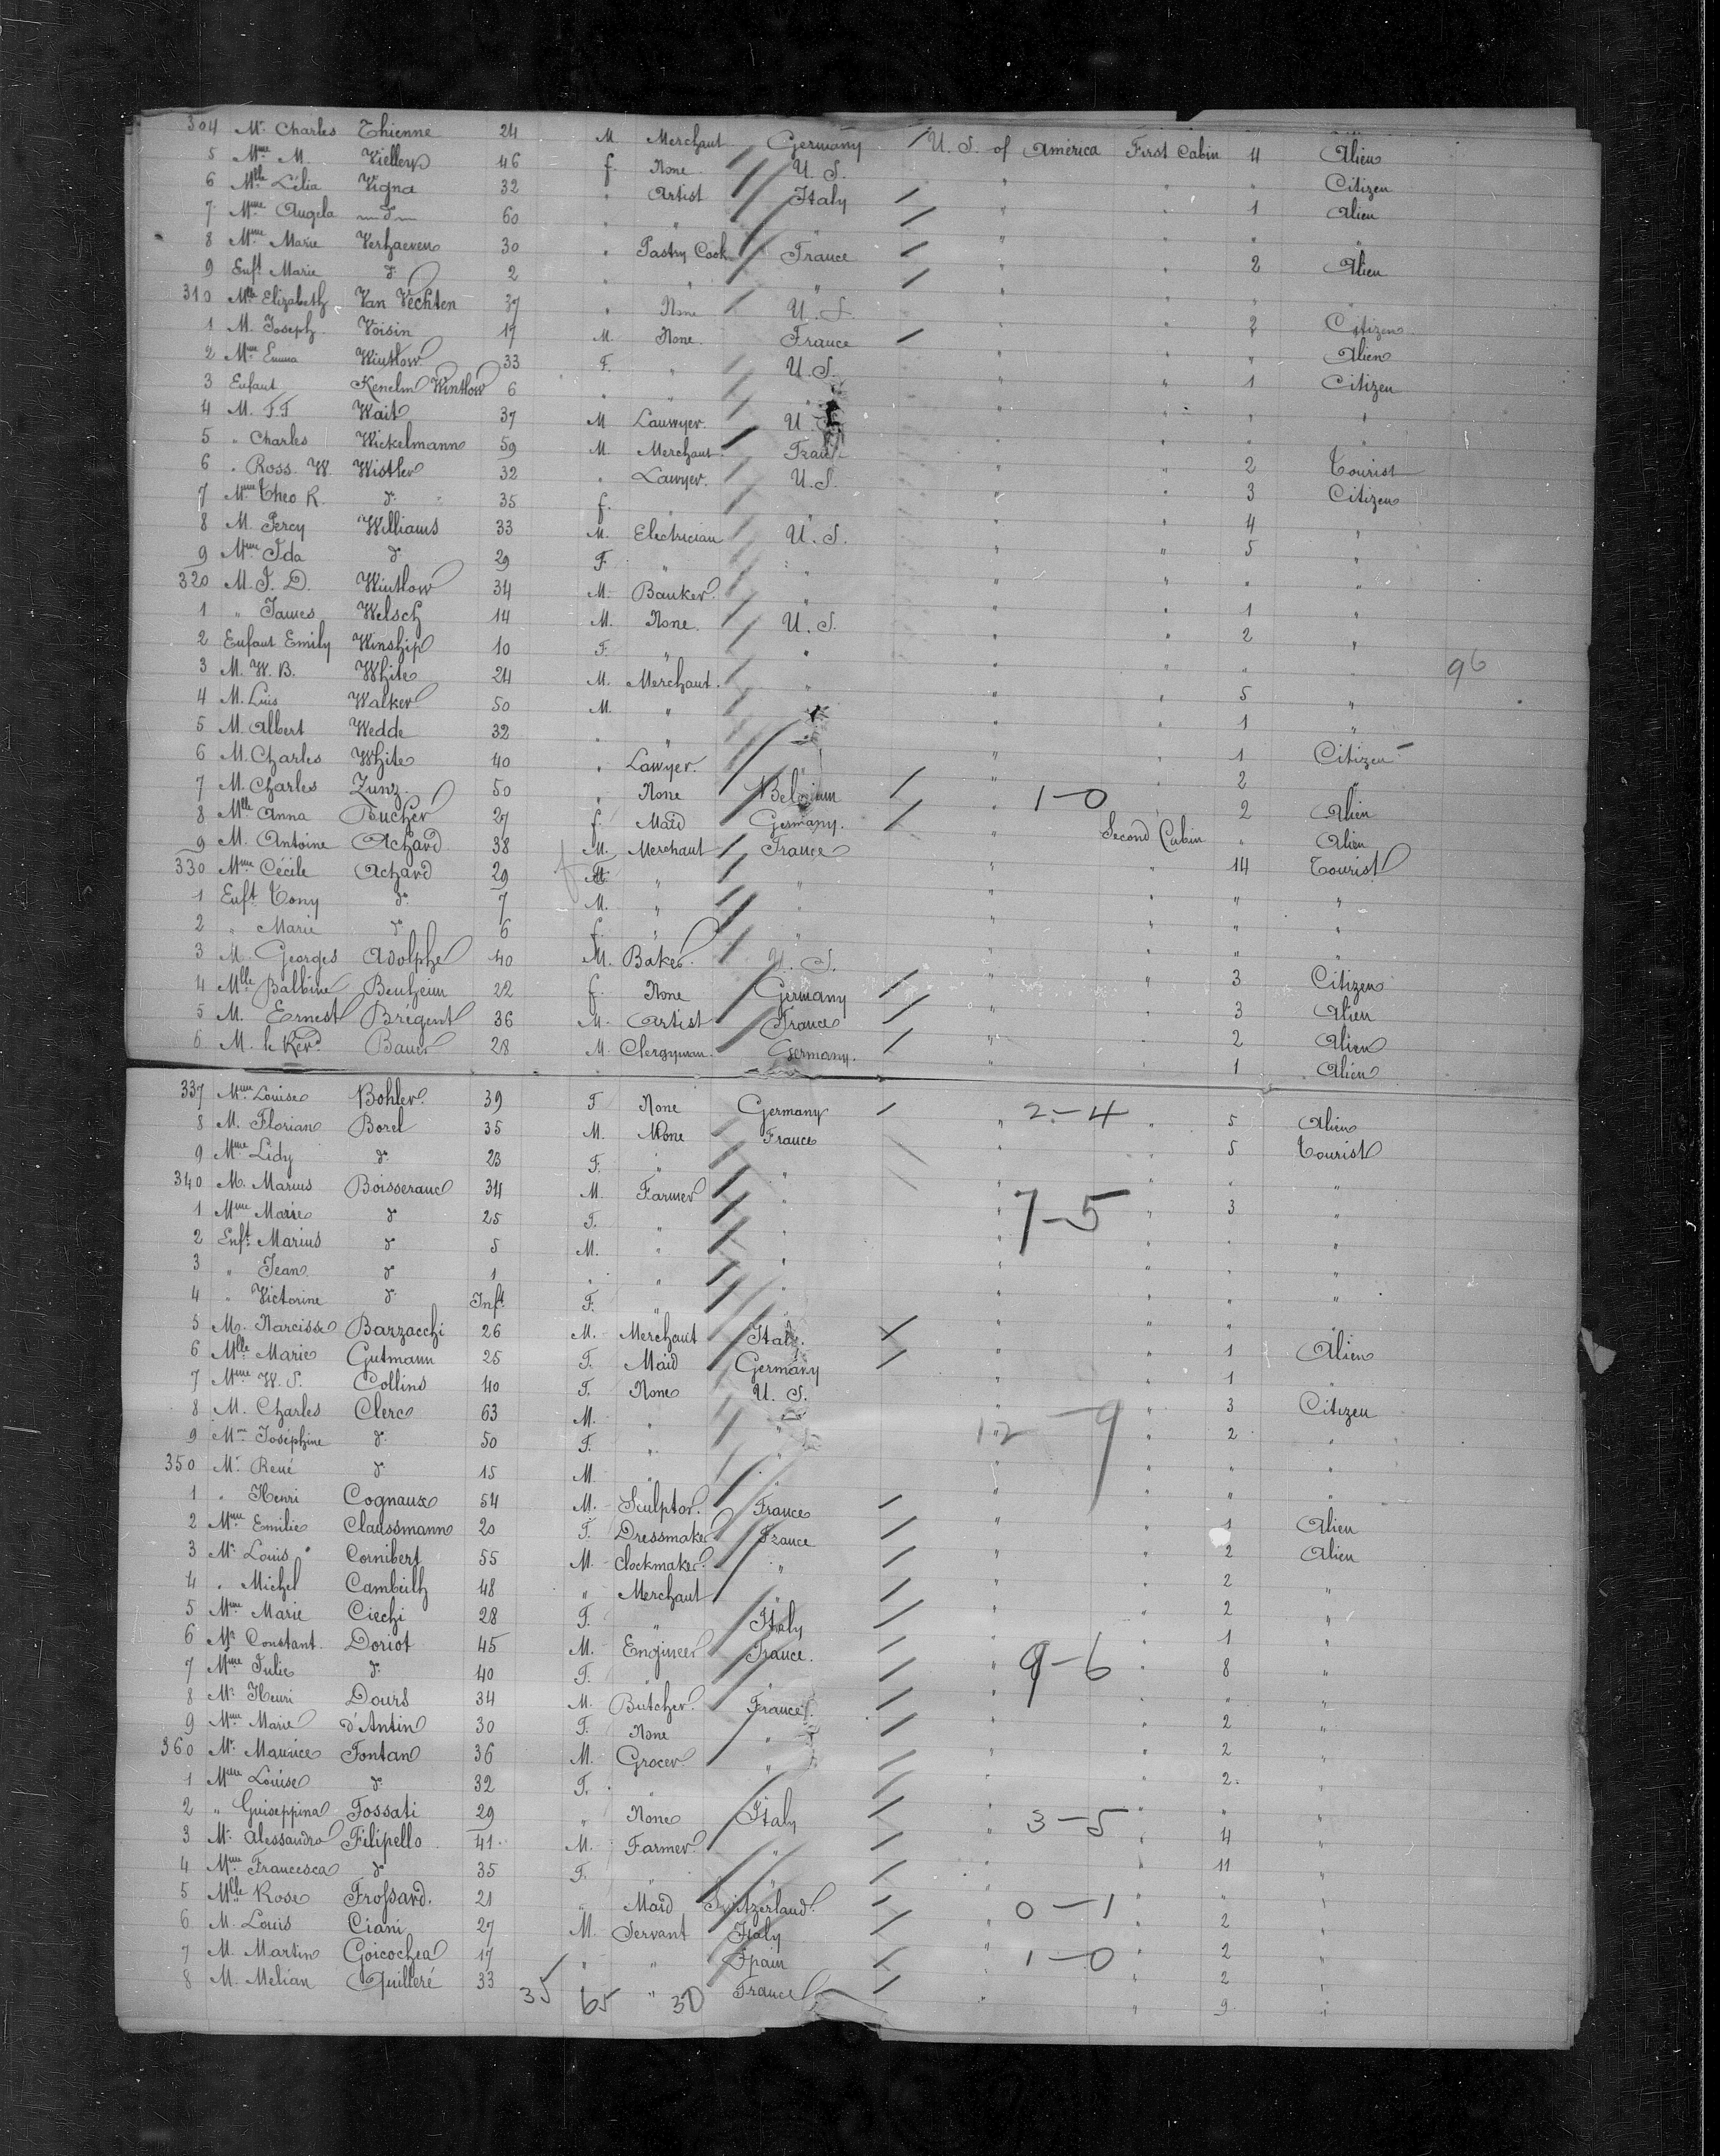 304 Mr. Charles Thienne 24 M Merchant Germany U. S. of América First Cabin 4 Alien
5 Mme M. Vielley 46 f. None U. S. " " " Citizen
6 Mlle Lélia Vigna 32 " Artist Italy " " 1 Alien
7 Mme Angela d° 60 " " " " " " "
8 Mme Marie Verhaeven 30 " Pastry Cook France " " 2 Alien
9 Enft Marie d° 2 " " " " " " "
310 Mlle Elizabeth Van Vechten 37 " None U. S. " " 2 Citizen
1 M. Joseph Voisin 17 M. None. France " " " Alien
2 Mme Emma Winslow 33 F. " U. S. " " 1 Citizen
3 Enfant Kenelm Winslow 6 " " " " " " "
4 M. F.F Wait 37 M Lauwyer. U. S. " " " "
5 " Charles Wickelmann 59 M. Merchant Franc " " 2 Tourist
6 " Ross. W. Wistler 32 " Lawyer. U. S. " " 3 Citizen
7 Mme Theo R. d° 35 f. " " " " 4 "
8 M. Percy Williams 33 M. Electrician U. S. " " 5 "
9 Mme Ida d° 29 F. " " " " " "
320 M. J. D. Winslow 34 M. Banker. " " " 1 "
1 " James Welsch 14 M. None. U. S. " " 2 "
2 Enfant Emily Winship 10 F. " " " " " "
3 M. W. B. White 24 M. Merchant. " " " 5 " 96
4 M. Luis Walker 50 M. " " " 1 "
5 M. Albert Wedde 32 " " " " 1 Citizen
6 M. Charles White 40 " Lawyer. " " 2 "
7 M. Charles Zunz 50 " None Belgium " 1-0 2 Alien
8 Mlle Anna Bucher 27 f. Maid Germany. " Second Cabin " Alien
9 M. Antoine Achard 38 M. Merchant France " " 14 Tourist
330 Mme Cécile Achard 29 f " " " " " "
1 Enft Tony d° 7 M. " " " " " "
2 " Marie d° 6 f. " " " " " "
3 M. Georges Adolphe 40 M. Baker. U. S. " " 3 Citizen
4 Mlle Balbine Benheim 22 f. None Germany " " 3 Alien
5 M. Ernest Bregent 36 M. Artist France " " 2 Alien
6 M. le Revd Bauer 28 M. Clergyman. Germany. " " 1 Alien
337 Mme Louise Bohler. 39 F None Germany " 2-4 " 5 Alien
8 M. Florian Borel 35 M. None France " " 5 Tourist
9 Mme Lidy d° 23 F. " " " " " "
340 M. Marius Boisseranc 34 M. Farmer " " 7-5 " 3 "
1 Mme Marie d° 25 F. " " " " " "
2 Enft Marius d° 5 M. " " " " " "
3 " Jean d° 1 " " " " " " "
4 " Victorine d° Inft F. " " " " " "
5 M. Narcisse Barzacchi 26 M. Merchant Italy. " " 1 Alien
6 Mlle Marie Gutmann 25 F. Maid Germany " " 1 "
7 Mme W. S. Collins 40 F. None U. S. " " 3 Citizen
8 M. Charles Clerc 63 M. " " 12-9 " 2 "
9 Mme Joséphine d° 50 F. " " " " " "
350 Mr René d° 15 M. " " " " " "
1 " Henri Cognaux 54 M. Sculptor. France " " 1 Alien
2 Mme Emilie Claussmann 20 F. Dressmaker France " " 2 Alien
3 Mr Louis Cornibert 55 M. Clockmaker. " " " 2 "
4 " Michel Cambeilh 48 " Merchant " " " 2 "
5 Mme Marie Ciechi 28 F. " Italy " " 1 "
6 Mr Constant Doriot 45 M. Engineer France. " 9-6 " 8 "
7 Mme Julie d° 40 F. " " " " " "
8 Mr Henri Dours 34 M. Butcher. France. " " 2 "
9 Mme Marie d'Antin 30 F. None " " " 2 "
360 Mr. Maurice Fontan 36 M. Grocer " " " 2. "
1 Mme Louise d° 32 F. " " " " " "
2 " Guiseppina Fossati 29 " None Italy " 3-5 " 4 "
3 Mr. Alessandro Filipello 41 M. Farmer. " " " 11 "
4 Mme Francesca d° 35 F. " " " " " "
5 Mlle Rose Frossard. 21 " Maid Switzerland. " 0-1 " 2 "
6 M. Louis Ciani 27 M. Servant Italy " " 2 "
7 M. Martin Goicochea 17 " " Spain " 1-0 " 2 "
8 M. Melian Guilleré 33 " " France " " 9 "
35 65 30